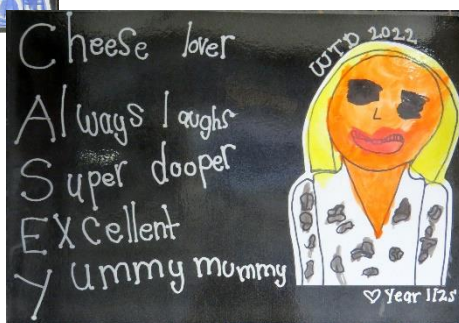 Cheese lover
Always laughs
Super dooper
Excellent
Yummy mummy
WTD 2022
♡ Year 1/2s